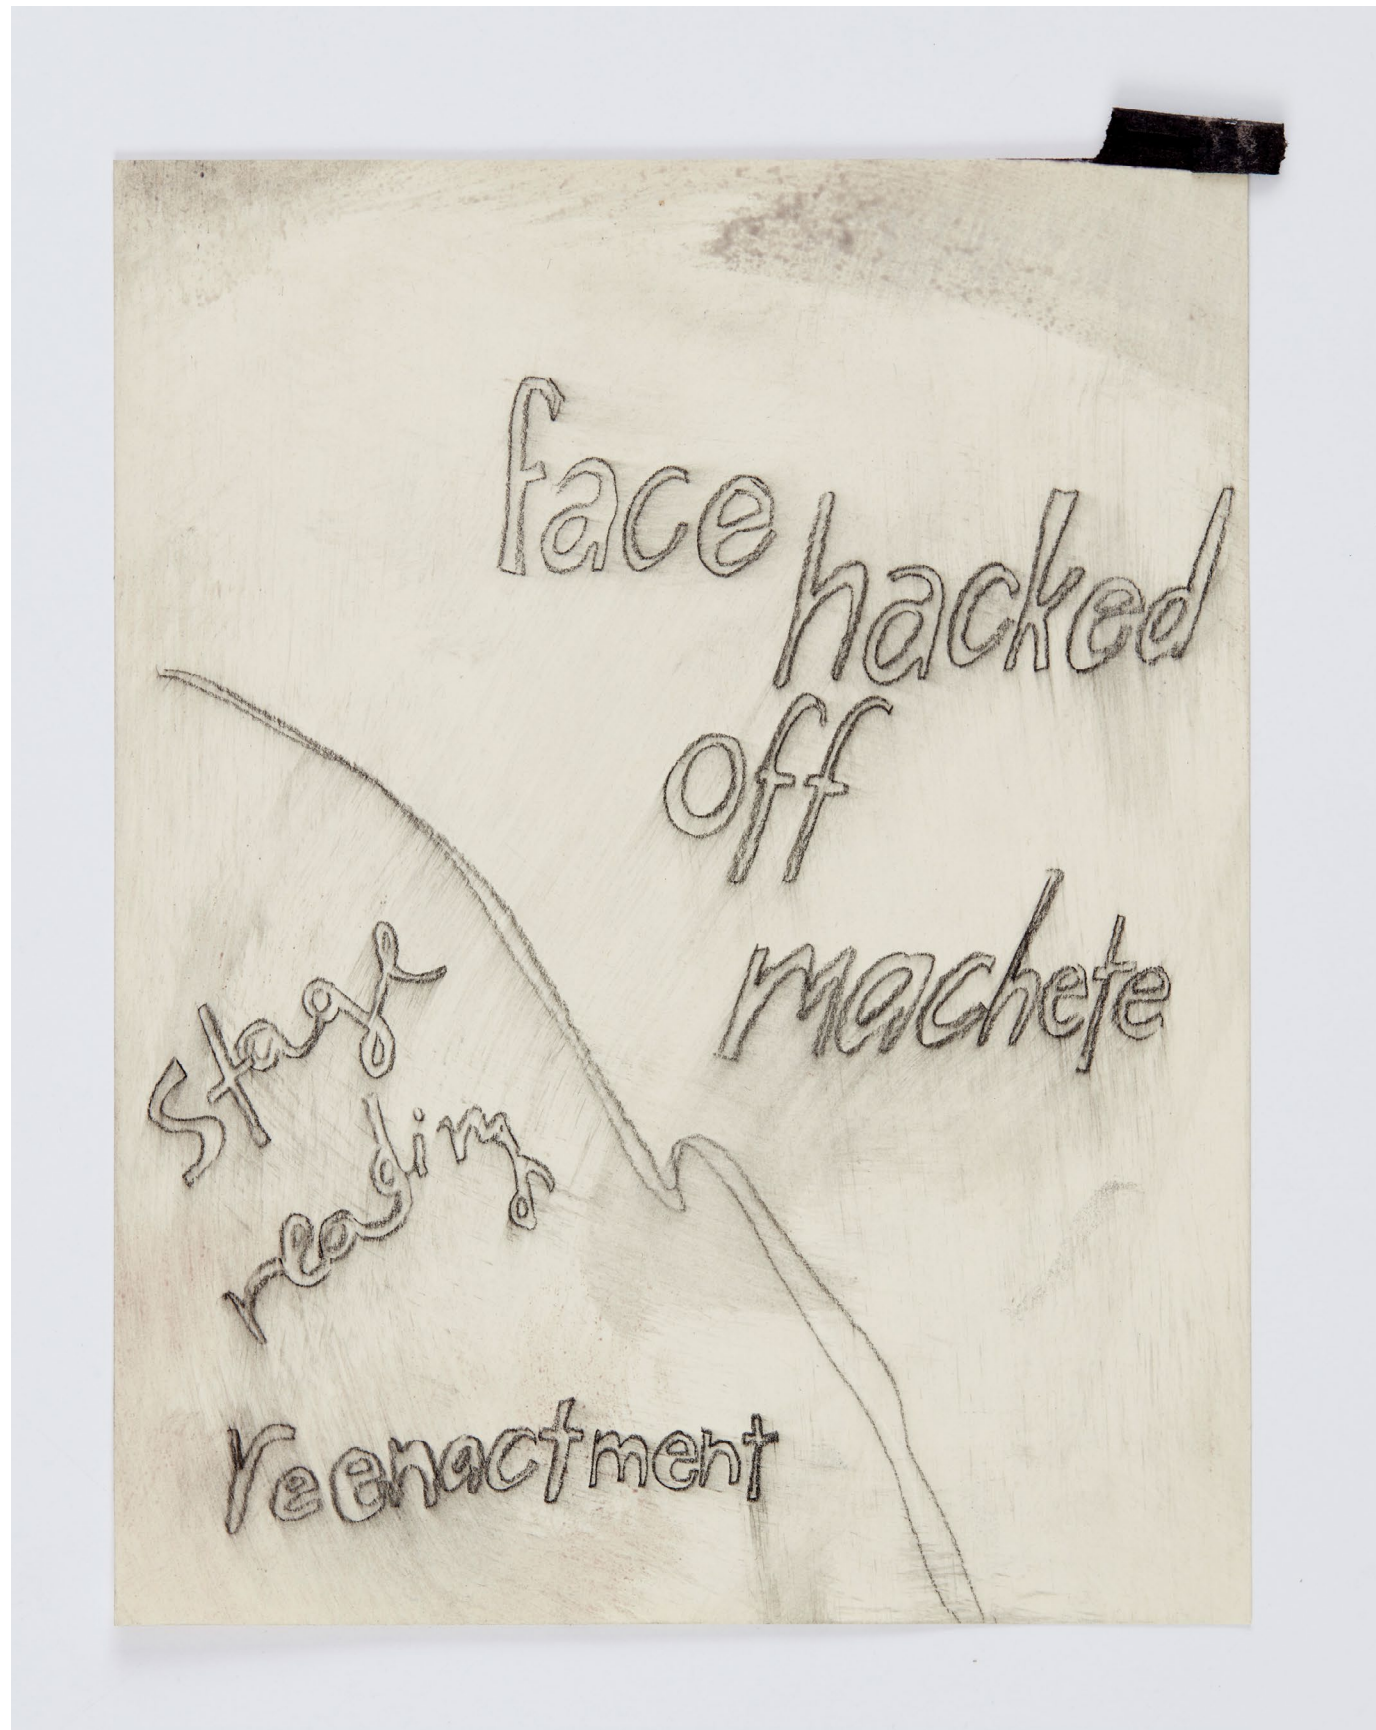 face
hacked
off
machete
stage
reading
reenactment